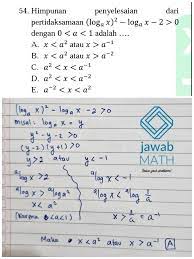 54. Himpunan penyelesaian dari
pertidaksamaan (log_a x)² − log_a x − 2 > 0
dengan 0 < a < 1 adalah ....
A. x < a² atau x > a⁻¹
B. x < a² atau x > a⁻²
C. a² < x < a⁻¹
D. a² < x < a⁻²
E. a⁻² < x < a²
(log_a x)² − log_a x − 2 > 0
misal: log_a x = y
y² − y − 2 > 0
(y−2)(y+1) > 0
y > 2 atau y < −1
ᵃlog x > 2
ᵃlog x > ᵃlog a²
x < a²
(karena 0<a<1)
ᵃlog x < ᵃlog 1/a
x > 1/a = a⁻¹
Maka x < a² atau x > a⁻¹ (A)
jawab
MATH